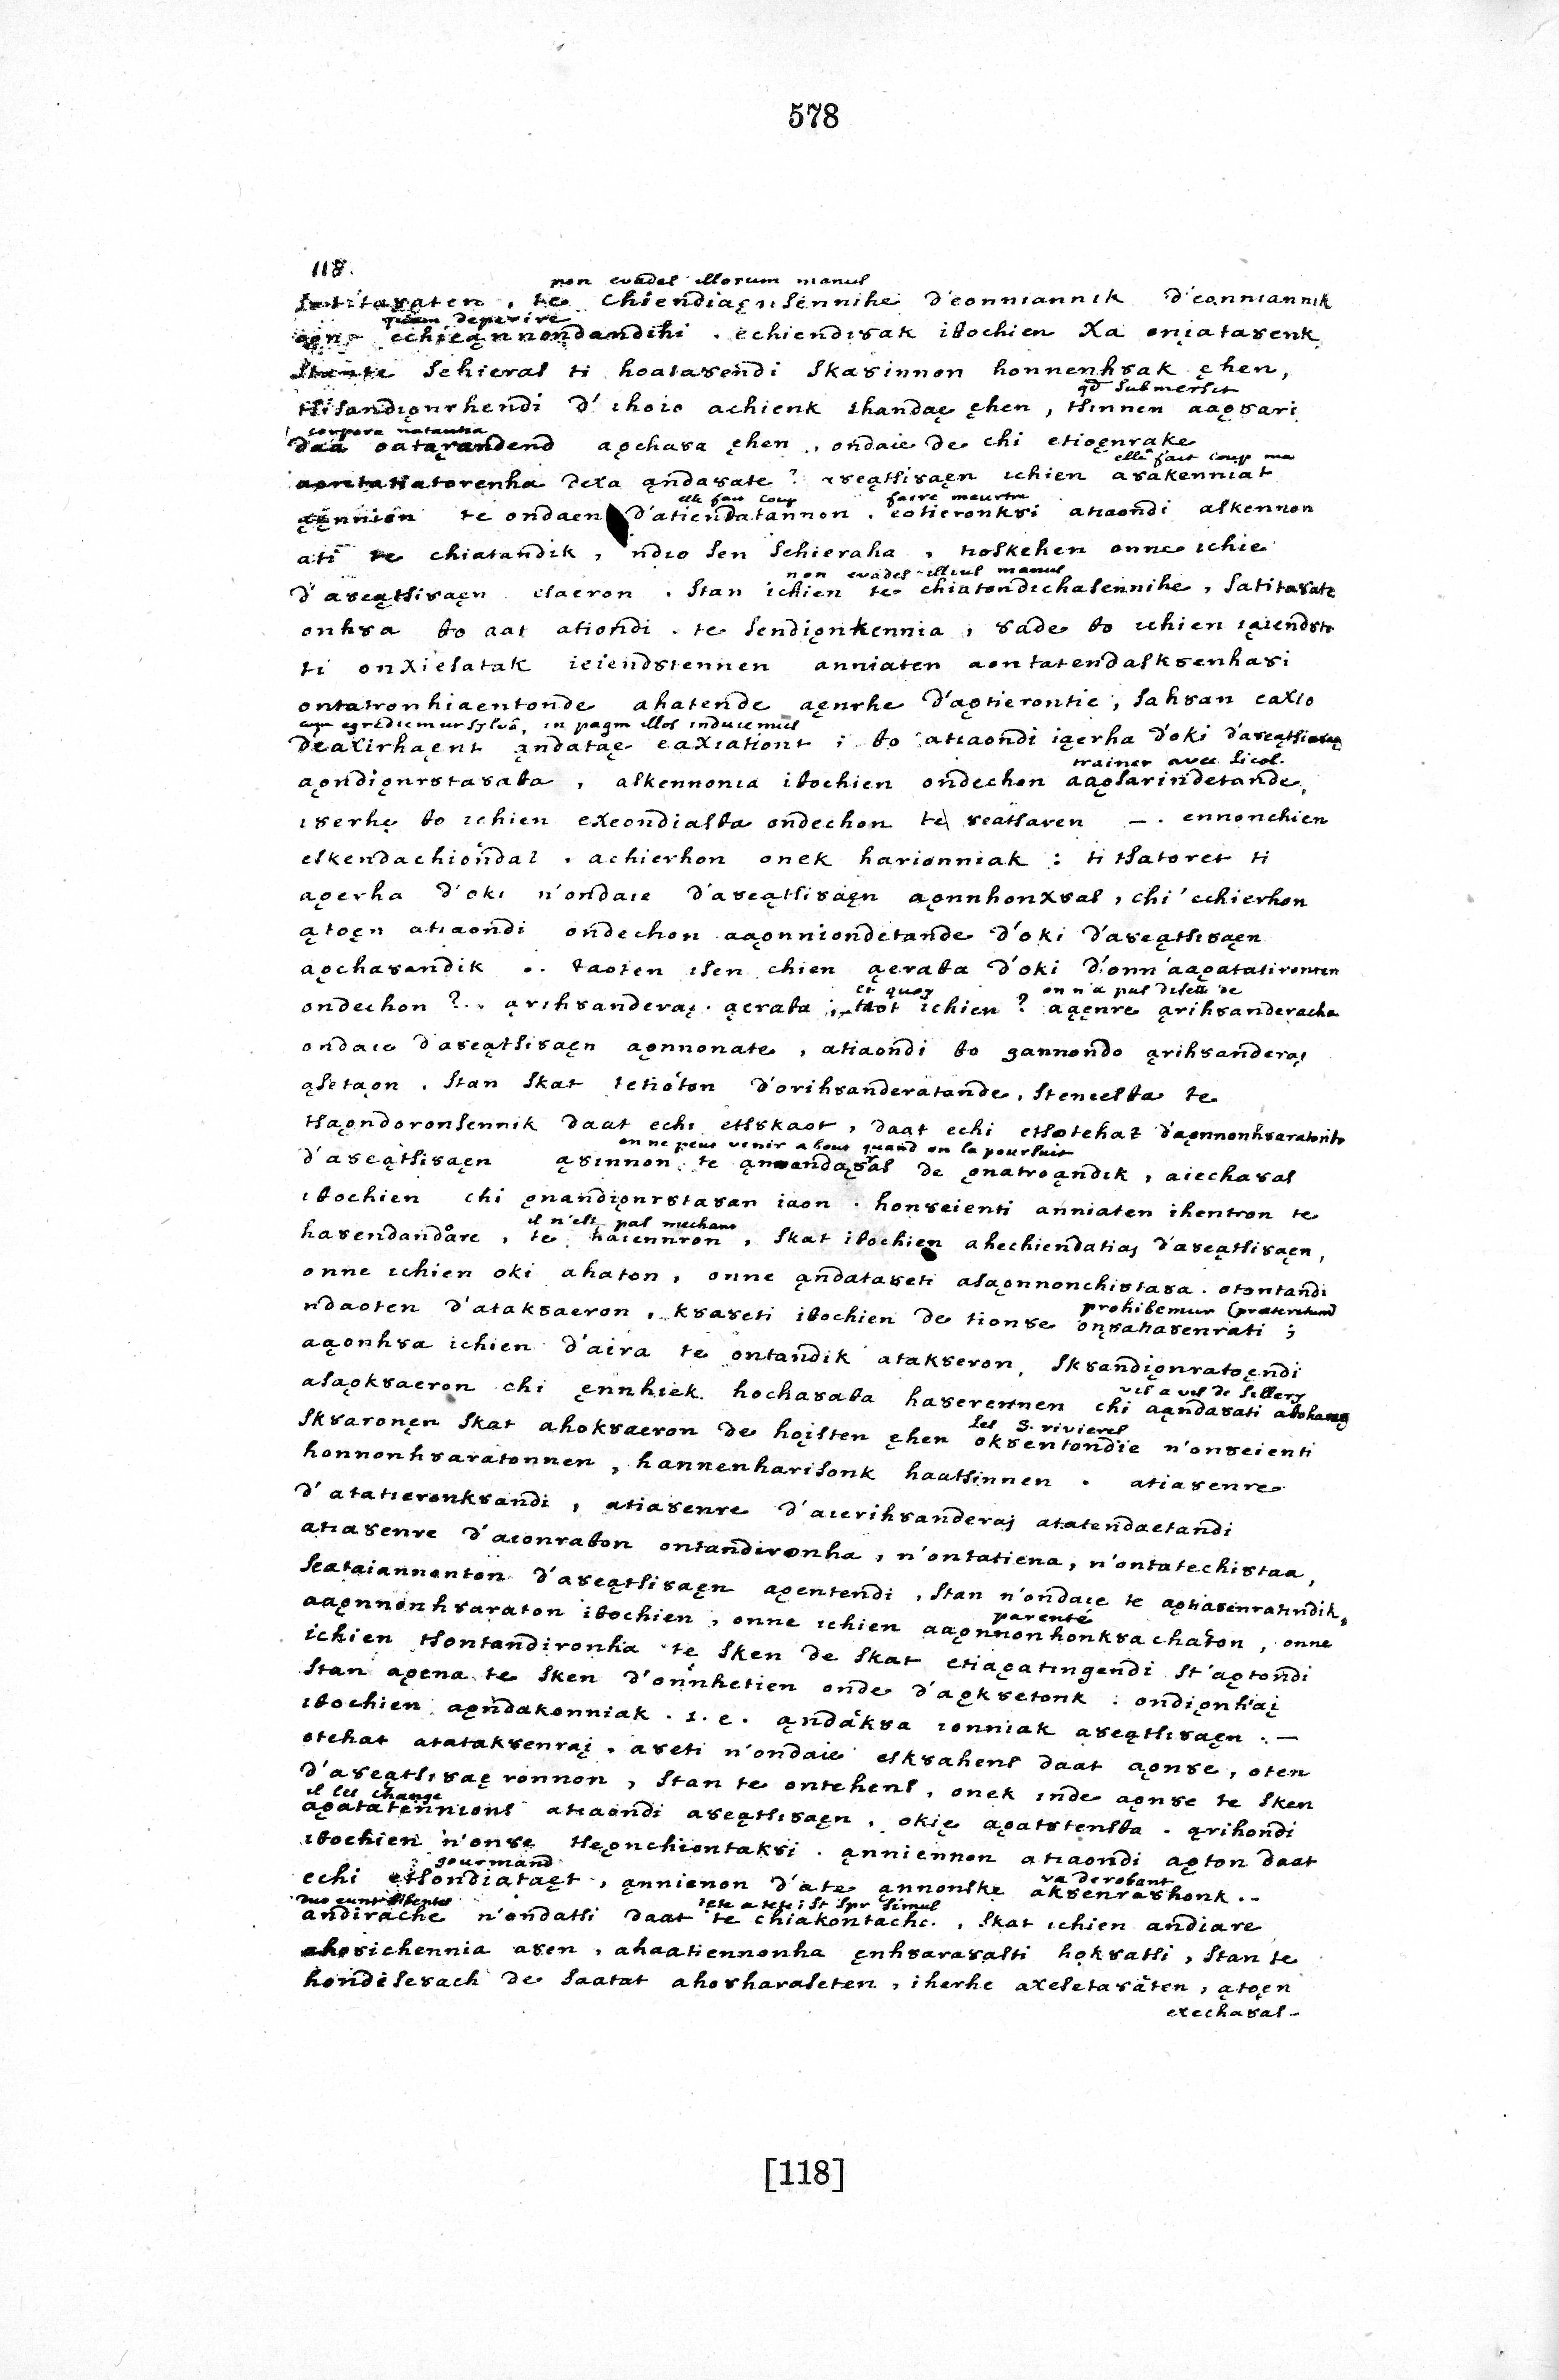 578
118.
non evades illorum manus
satitaȣaten , te chiendiaęnsennihe d'eonniannik d'eonniannik
quam deperire
echieąnnondandihi . echiendiȣak iθochien xa oniataȣenk
schieras ti hoataȣendi skaȣinnon honnenhȣak ęhen,
qd submersit
tsisandiǫnrhendi d'ihoio achienk ihandaę ęhen , tsinnen aaǫȣari
corpora natantia
daa oataȣandend aǫchaȣa ęhen , ondaie de chi etioęnrake
elle fait coup ma
dexa ąndaȣate ? aȣeątsiȣaęn ichien aȣakenniat
elle fait coup faire meurtre
ąęnnion te ondaen d'atiendatannon . eotieronkȣi atiaondi askennon
ati te chiatandik , ndio sen schieraha , tioskehen onne ichie
non evades illius manus
d'aȣeątsiȣaęn esaeron . stan ichien te chiatondichasennihe , satitaȣate
onhȣa θo aat ationdi . te sendiǫnkennia , ȣade θo ichien iąiendȣte
ti onxiesatak ieiendȣtennen anniaten aontatendaskȣenhaȣi
ontatronhiaentonde ahatende aęnrhe d'aǫtierontie , sahȣan eaxio
cum egrediemur sylvâ, in pagum illos inducemus
deaxirhaęnt ąndataę eaxiationt ; θo atiaondi iąerha d'oki d'aȣeątsiȣaę
trainer avec licol.
aǫndiǫnrȣtaȣaθa , askennonia iθochien ondechon aaǫsarindetande,
iȣerhe θo ichien exeondiasθa ondechon te ȣeatsaȣen – . ennonchien
eskendachiondaz . achierhon onek harionniak : ti tsatoret ti
aǫerha d'oki n'ondaie d'aȣeątsiȣaęn aǫnnhonxȣas , chi ichierhon
ątoęn atiaondi ondechon aaǫnniondetande d'oki d'aȣeątsiȣaęn
aǫchaȣandik .. taoten isen chien ąeraθa d'oki d'onn'aaǫatatironten
et quoy on n'a pas disette de
ondechon ? . ąrihȣanderaį . ąeraθa , tsiot ichien ? aąęnre ąrihȣanderacha
ondaie d'aȣeątsiȣaęn aǫnnonate , atiaondi θo gannondo ąrihȣanderaį
ąsetaǫn . stan skat tetioton d'orihȣanderatande , steniesθa te
tsaǫndoronsennik daat echi etsȣkaot , daat echi etsotehaz d'aǫnnonhȣaratonte
on ne peut venir a bout quand on la poursuit
d'aȣeątsiȣaęn ąȣinnon te ąnnandaȣas de ǫnatroąndik , aiechaȣas
iθochien chi ǫnandiǫnrȣtaȣan iaon . honȣeienti anniaten ihentron te
il n'est pas mechant
haȣendandare , te haiennron , skat iθochien ahechiendatiaį d'aȣeątsiȣaęn,
onne ichien oki ahaton , onne ąndataȣeti asaǫnnonchiȣtaȣa . otontandi
prohibemur (præteritum)
ndaoten d'atakȣaeron , kȣaȣeti iθochien de tionȣe onȣahaȣenrati ;
aąonhȣa ichien d'aira te ontandik atakȣeron , skȣandiǫnratoęndi
vis a vis de sillery
asaǫkȣaeron chi ęnnhiek . hochaȣaθa haȣerennen chi aąndaȣati
les 3. rivieres
skȣaronęn skat ahokȣaeron de hoįsten ęhen okȣentondie n'onȣeienti
honnonhȣaratonnen , hannenharisonk haatsinnen . atiaȣenre
d'atatieronkȣandi , atiaȣenre d'aierihȣanderaį atatendaetandi
atiaȣenre d'aionraθon ontandironha , n'ontatiena , n'ontatechiȣtaa,
seataiannonton d'aȣeątsiȣaęn aǫentendi , stan n'ondaie te aǫtiaȣenratindik,
parenté
aaǫnnonhȣaraton iθochien , onne ichien aaǫnnonhonkȣachaton , onne
ichien tsontandironha te sken de skat etiaǫatingendi st'aǫtondi
stan aǫena te sken d'onnhetien onde d'aǫkȣetonk : ondiǫnhaį
iθochien aǫndakonniak . i. e. ąndakȣa ionniak aȣeątsiȣaęn . –
otehat atatakȣenraį , aȣeti n'ondaie eskȣahens daat aǫnȣe , oten
d'aȣeątsiȣaęronnon , stan te ontehens , onek inde aǫnȣe te sken
il les change
aǫatatennions atiaondi aȣeątsiȣaęn , okię aǫatȣtensθa . ąrihondi
iθochien n'onȣe tseǫnchiontakȣi . ąnniennon atiaondi aǫton daat
gourmand va derobant
echi etsondiataęt , ąnnienon d'ate ąnnonske akȣenraȣhonk ..
duo eunt tete a tete ; st spr simul
andirache n'ondatsi daat te chiakontache . , skat ichien andiare
ahoȣichennia aȣen , ahaatiennonha ęnhȣaraȣasti hokȣatsi , stan te
hondeseȣach de saatat ahoȣharaseten , iherhe axesetaȣaten , ątoęn
exechaȣas –
[118]